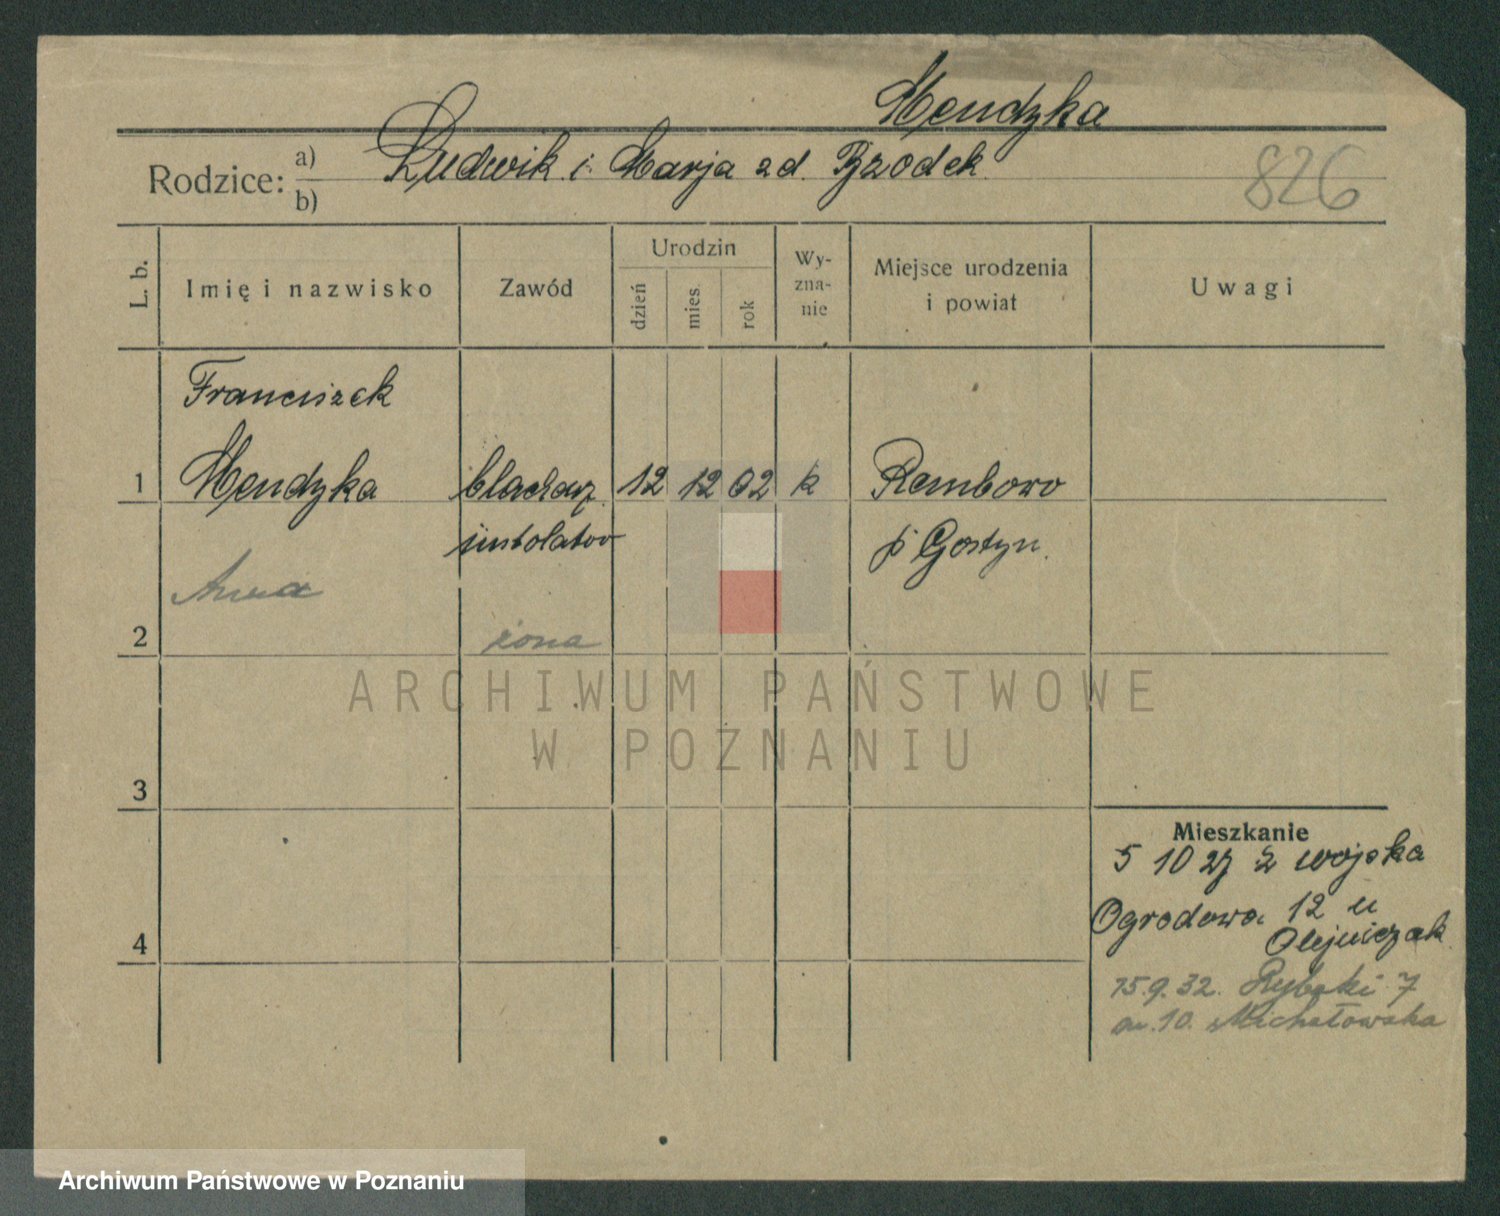 Mendyka
Rodzice: a) Ludwik i Marja zd. Bzodek
b)
826
L. b.
Imię i nazwisko
Zawód
Urodzin
dzień
mies.
rok
Wy-
zna-
nie
Miejsce urodzenia
i powiat
Uwagi
Franciszek
1 Mendyka blacharz 12 12 02 k Rembowo
instolator p Gostyn.
Anna
2 żona
ARCHIWUM PAŃSTWOWE
W POZNANIU
3
Mieszkanie
5 10 27 z wojska
Ogrodowa 12 u
Olejniczak
4
15.9.32. Rybaki 7
m.10. Michałowska
Archiwum Państwowe w Poznaniu